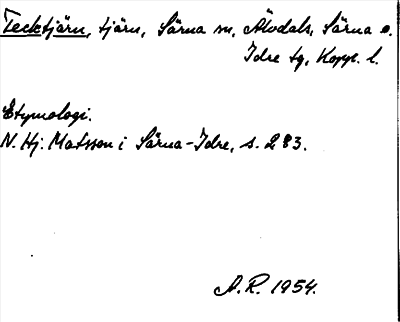 Tecktjärn, tjärn, Särna sn, Älvdals, Särna o.
Idre tg, Kopp. l.
Etymologi.
N. Hj. Matsson i Särna-Idre, s. 283.
A.R. 1954.